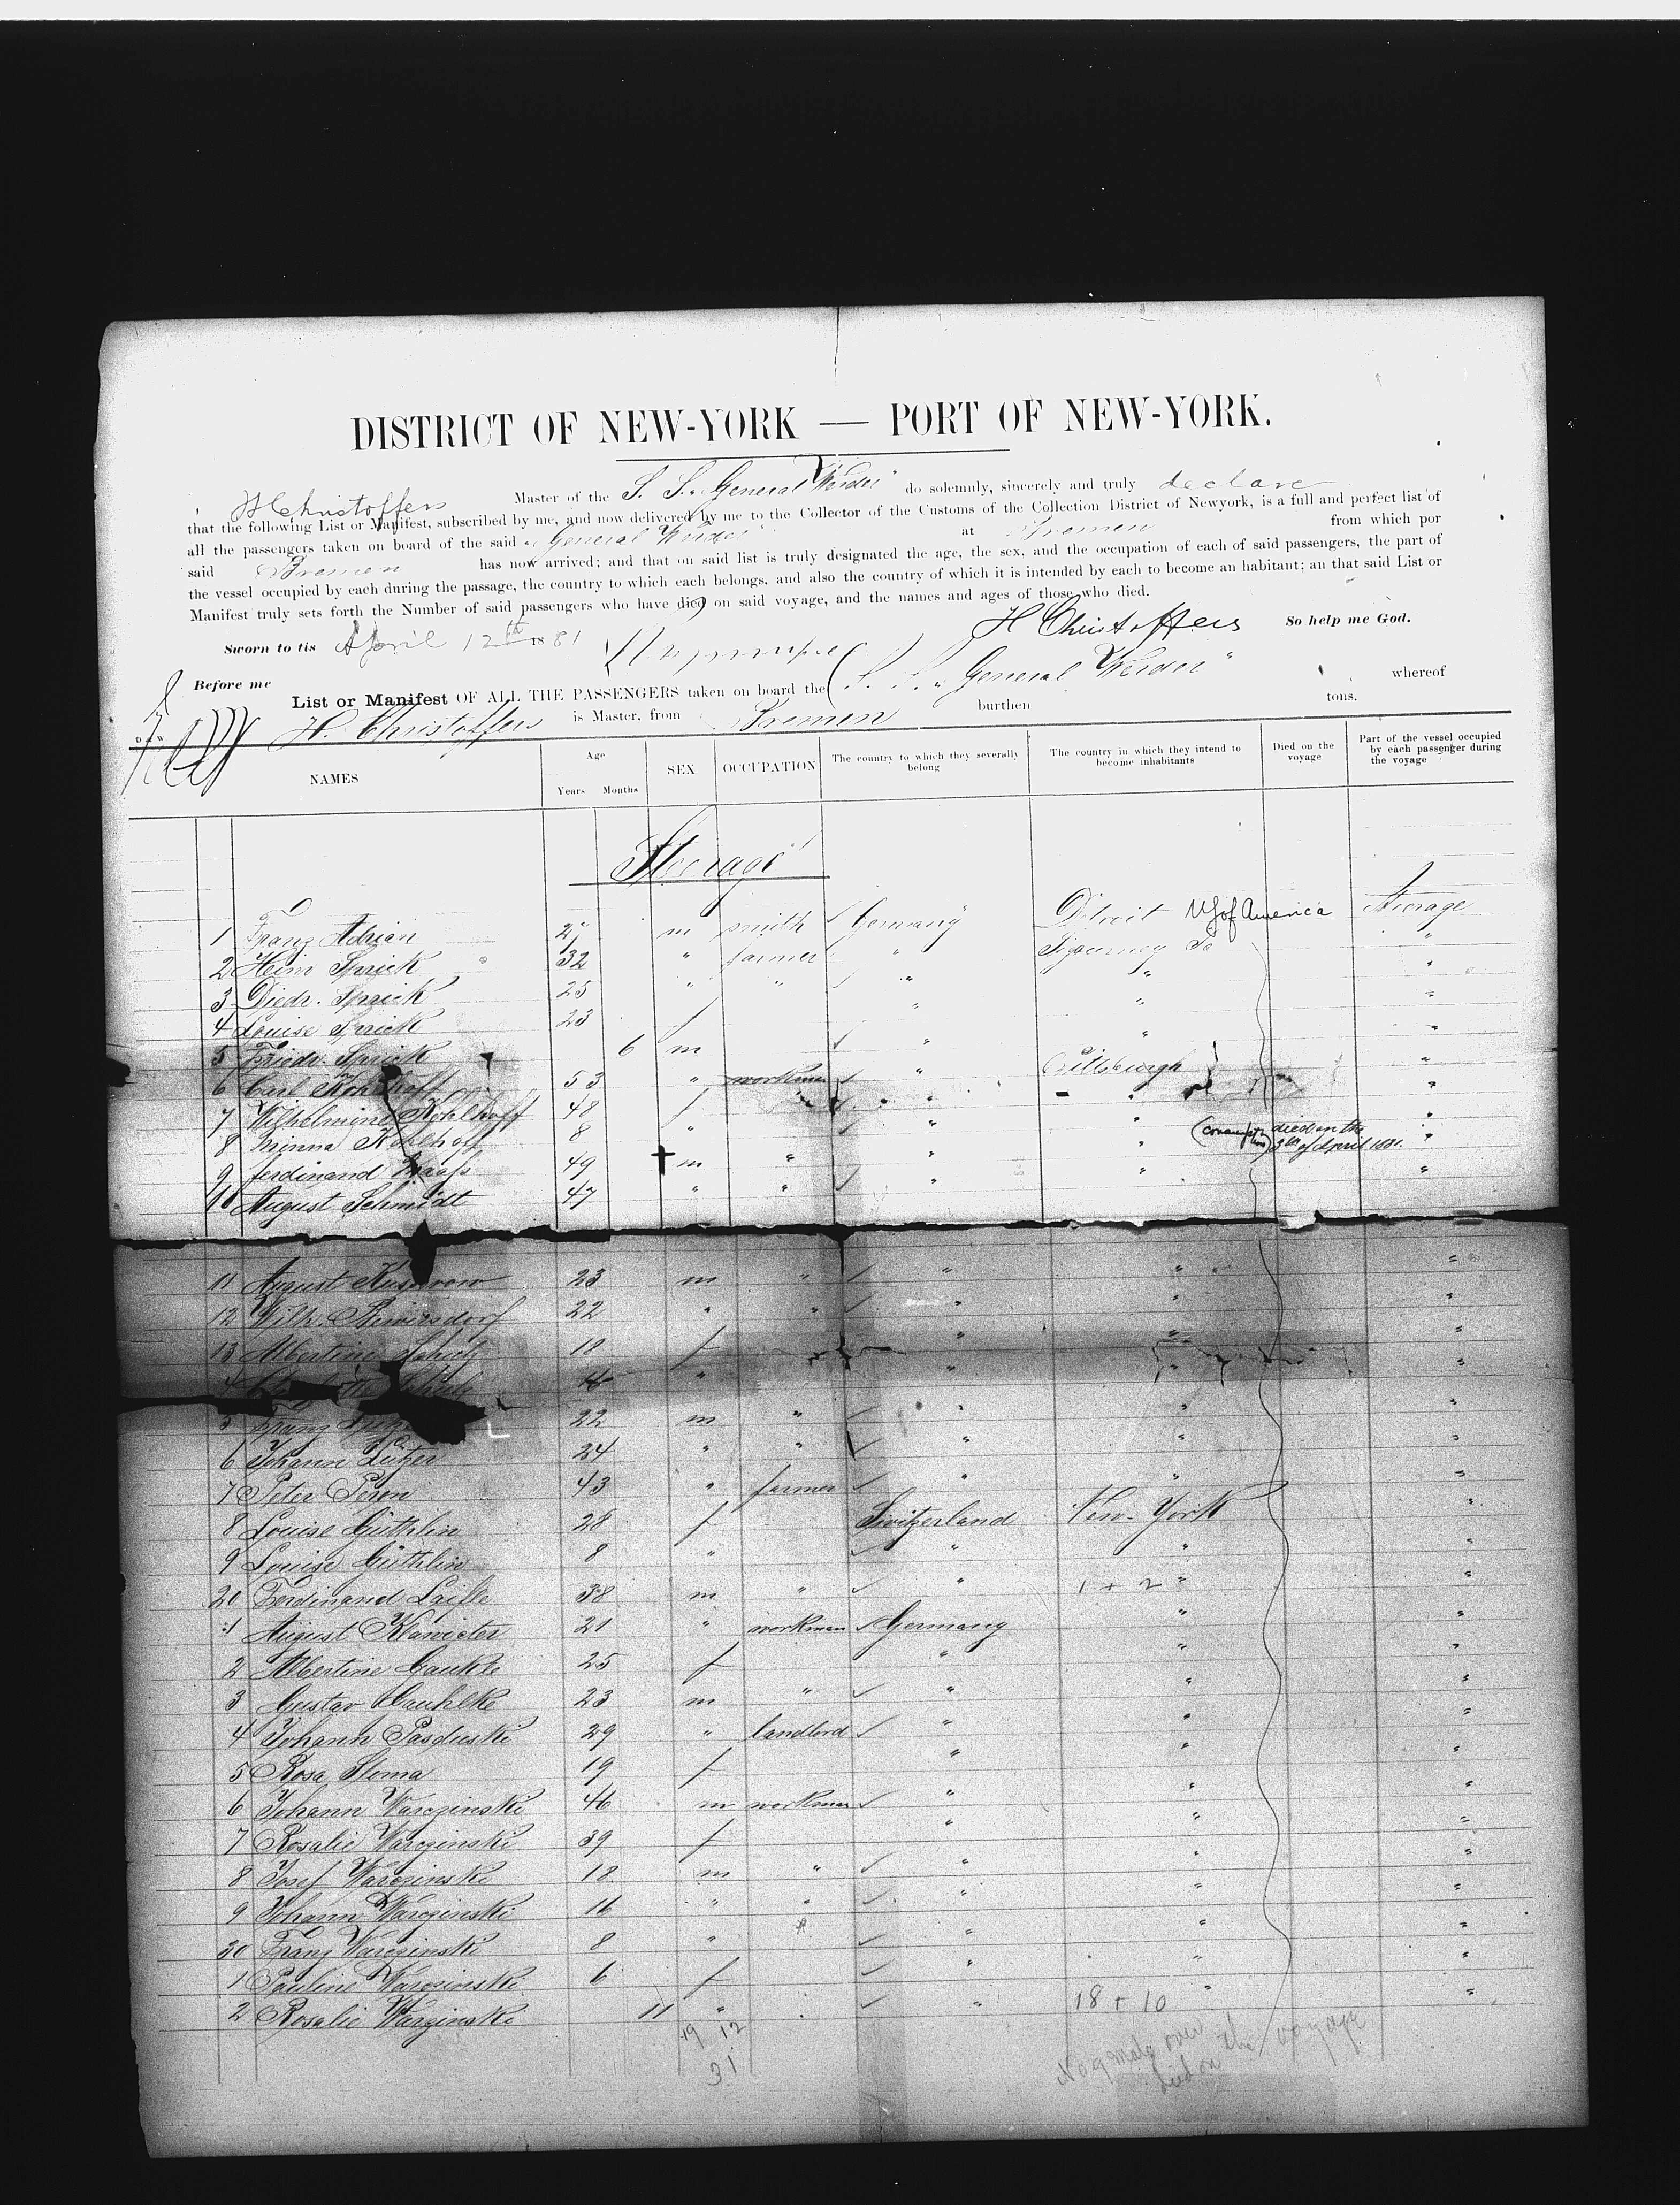 DISTRICT OF NEW-YORK — PORT OF NEW-YORK.
H Christoffers Master of the S. S. "General Werder" do solemnly, sincerely and truly declare
that the following List or Manifest, subscribed by me, and now delivered by me to the Collector of the Customs of the Collection District of Newyork, is a full and perfect list of
all the passengers taken on board of the said "General Werder" at Bremen from which por
said Bremen has now arrived; and that on said list is truly designated the age, the sex, and the occupation of each of said passengers, the part of
the vessel occupied by each during the passage, the country to which each belongs, and also the country of which it is intended by each to become an habitant; an that said List or
Manifest truly sets forth the Number of said passengers who have died on said voyage, and the names and ages of those who died.
Sworn to tis April 12th 1881 H Christoffers So help me God.
Before me
List or Manifest OF ALL THE PASSENGERS taken on board the S. S. "General Werder" whereof
H. Christoffers is Master, from Bremen burthen tons.
NAMES Age Years Months SEX OCCUPATION The country to which they severally belong The country in which they intend to become inhabitants Died on the voyage Part of the vessel occupied by each passenger during the voyage
Steerage
1 Franz Adrian m smith Germany Detroit US of America Steerage
2 Heinr Sprick 32 " farmer " "
3 Diedr. Sprick 25 " " " " "
4 Louise Sprick 23 f " " "
5 Friedr. Sprick 6 m " " "
6 Carl Kohlhoff 53 " workman " Pittsburgh "
7 Wilhelmine Kohlhoff 48 f " "
8 Minna Kohlhoff 8 " " "
9 Ferdinand Maass 49 † m " " " died on the 3th of April 1881. "
10 August Schmidt 47 " " " " "
11 August 23 m " " " "
12 Wilh. 22 " " " " "
13 Albertine f " " "
" " " "
5 Franz 22 m " " " "
6 Johann Lutzer 24 " " " " "
7 Peter Peron 43 " farmer " " "
8 Louise Güthlin 28 f Switzerland New-York "
9 Louise Güthlin 8 " " " "
20 Ferdinand 38 m " " 1 + 2 " "
1 August Klawieter 21 " workman Germany " "
2 Albertine Gaukle 25 f " " "
3 Gustav Gauhlke 23 m " " " "
4 Johann Pasduski 29 " landlord " " "
5 Rosa Sloma 19 f " " "
6 Johann Warczinski 46 m workman " " "
7 Rosalie Warczinski 39 f " " "
8 Josef Warczinski 18 m " " " "
9 Johann Warczinski 16 " " " " "
30 Franz Warczinski 8 " " " "
1 Pauline Warczinski 6 f " " "
2 Rosalie Warczinski 11 " " 18 + 10 " "
19 12
31
No 9 male over
died on the voyage